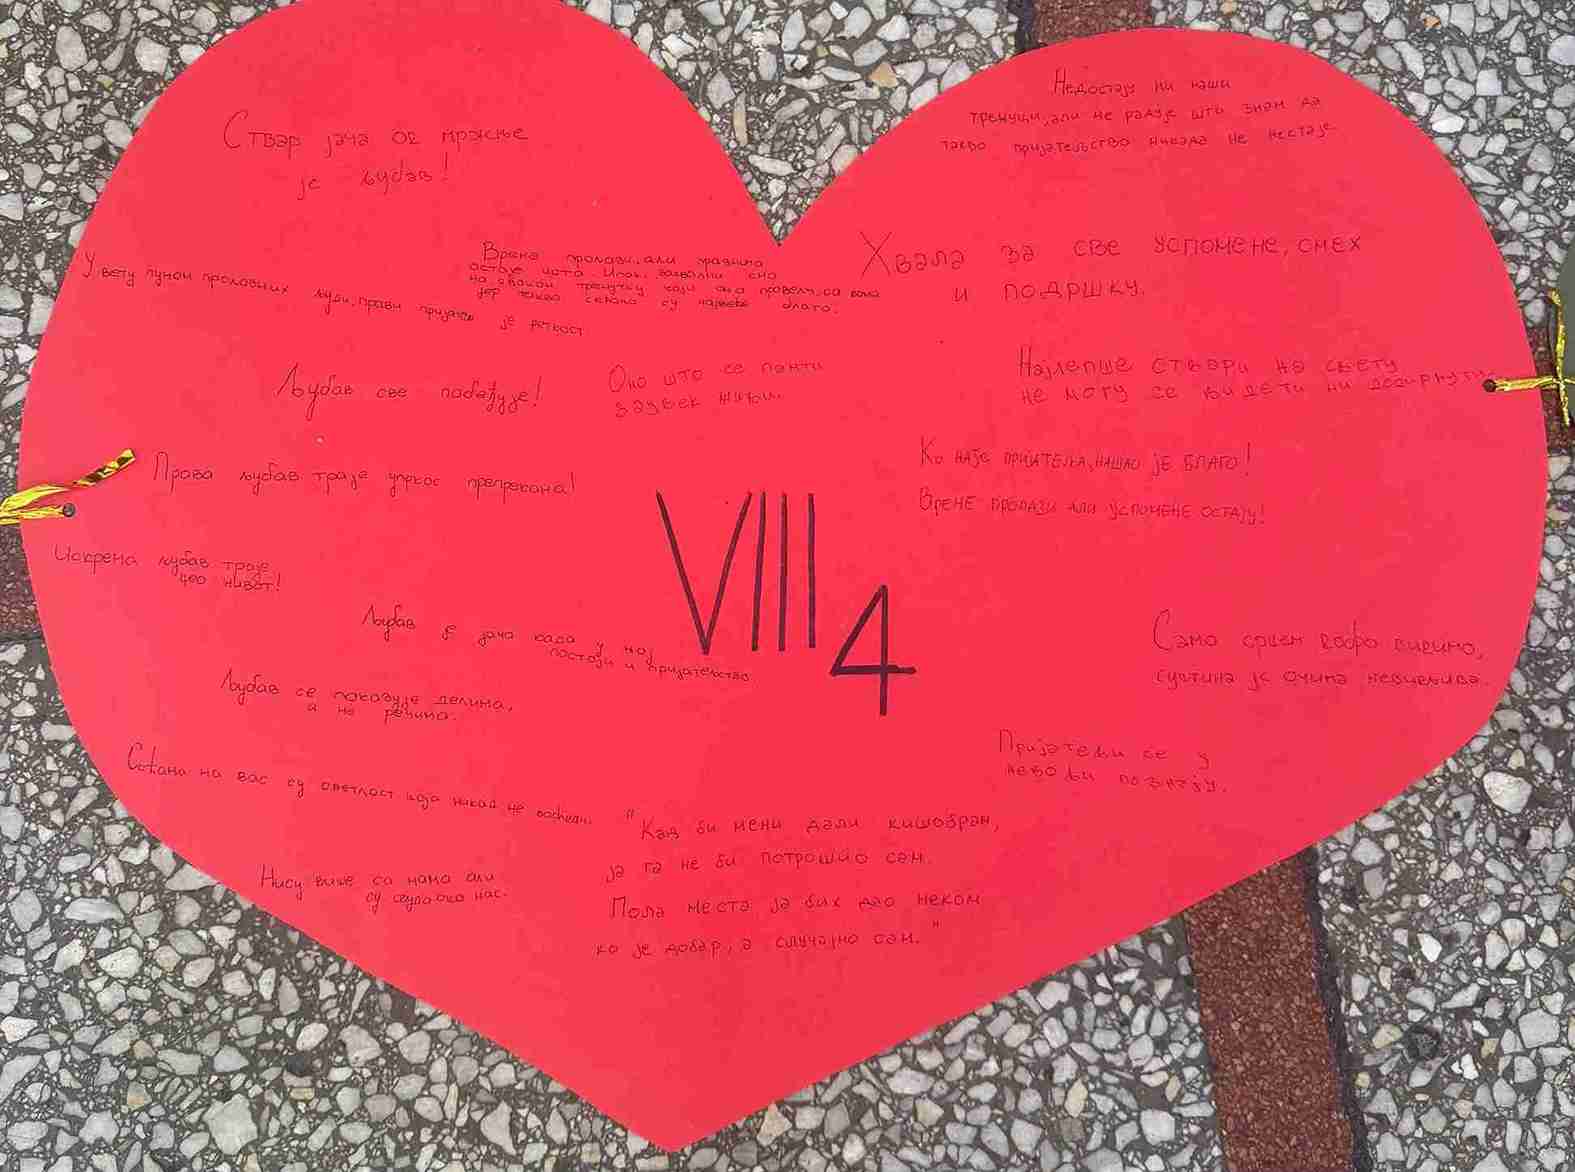 Ствар јача од мржње
је љубав!
Недостају ми наши
тренуци, али ме радује што знам да
такво пријатељство никада не нестаје
У свету пуном пролазних људи, прави пријатељ је реткост.
Време пролази, али празнина
остаје иста. Ипак, захвални смо
на сваком тренутку који смо провели са вама
јер таква сећања су највеће благо.
Хвала за све успомене, смех
и подршку.
Љубав све побеђује!
Оно што се памти
заувек живи.
Најлепше ствари на свету
не могу се видети ни додирнути
Права љубав траје упркос препрекама!
Ко нађе пријатеља, нашао је благо!
Време пролази али успомене остају!
Искрена љубав траје
цео живот!
VIII 4
Љубав је јача када у њој
постоји и пријатељство
Љубав се показује делима,
а не речима.
Само срцем добро видимо,
суштина је очима невидљива.
Сећања на вас су светлост која никад не
Пријатељи се у
невољи познају.
Нису више са нама али
су свуда око нас.
"Кад би мени дали кишобран,
ја га не би потрошио сам.
Пола места ја бих дао неком
ко је добар, а случајно сам."